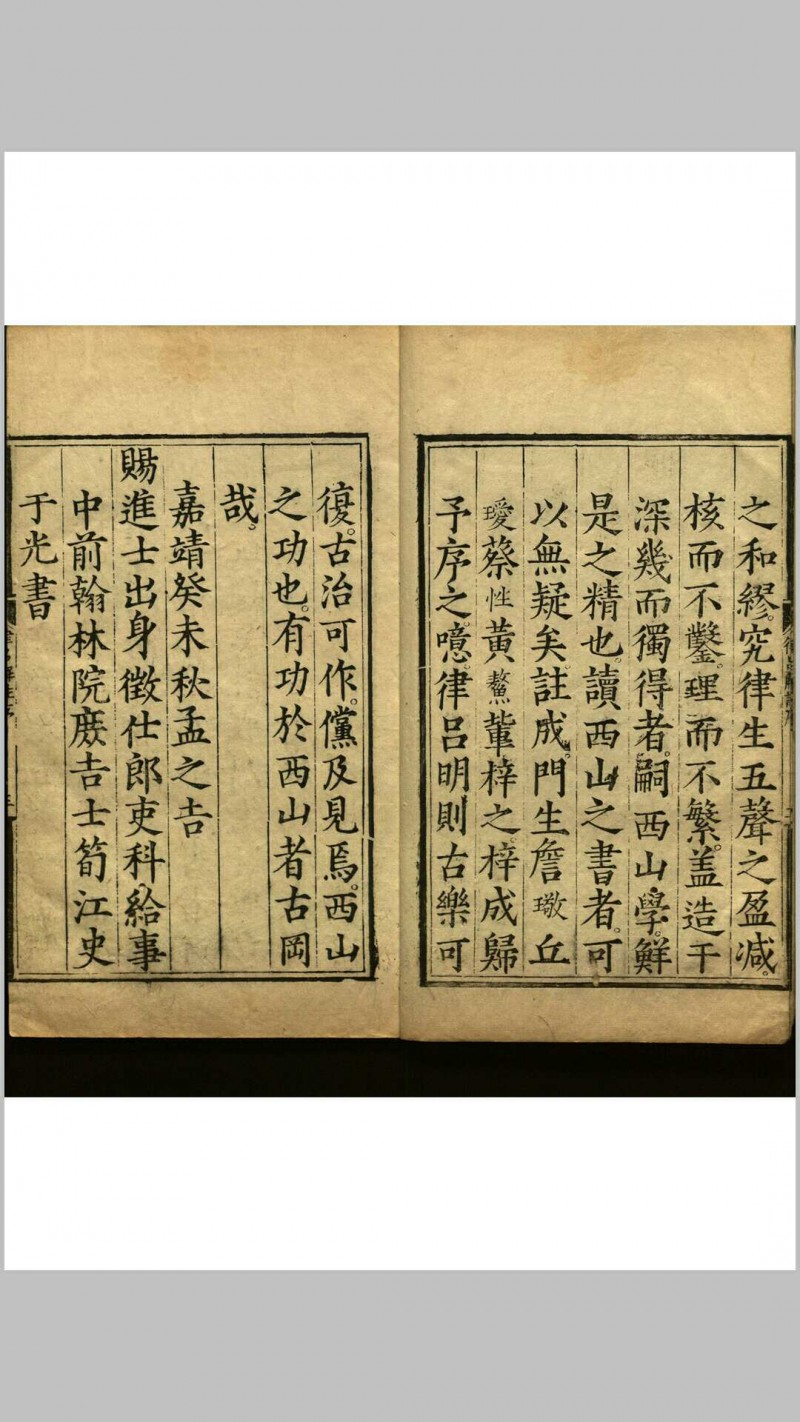 之和繆。究律生五聲之盈減。
核而不鑿。理而不繁。盖造于
深幾而獨得者。嗣西山學。鮮
是之精也。讀西山之書者。可
以無疑矣。註成。門生詹璥丘
璦蔡性黃鰲軰梓之。梓成。歸
予序之。噫。律呂明則古樂可
復。古治可作。儻及見焉。西山
之功也。有功於西山者古岡
哉。
嘉靖癸未秋孟之吉
賜進士出身徵仕郎吏科給事
中前翰林院庶吉士筍江史
于光書